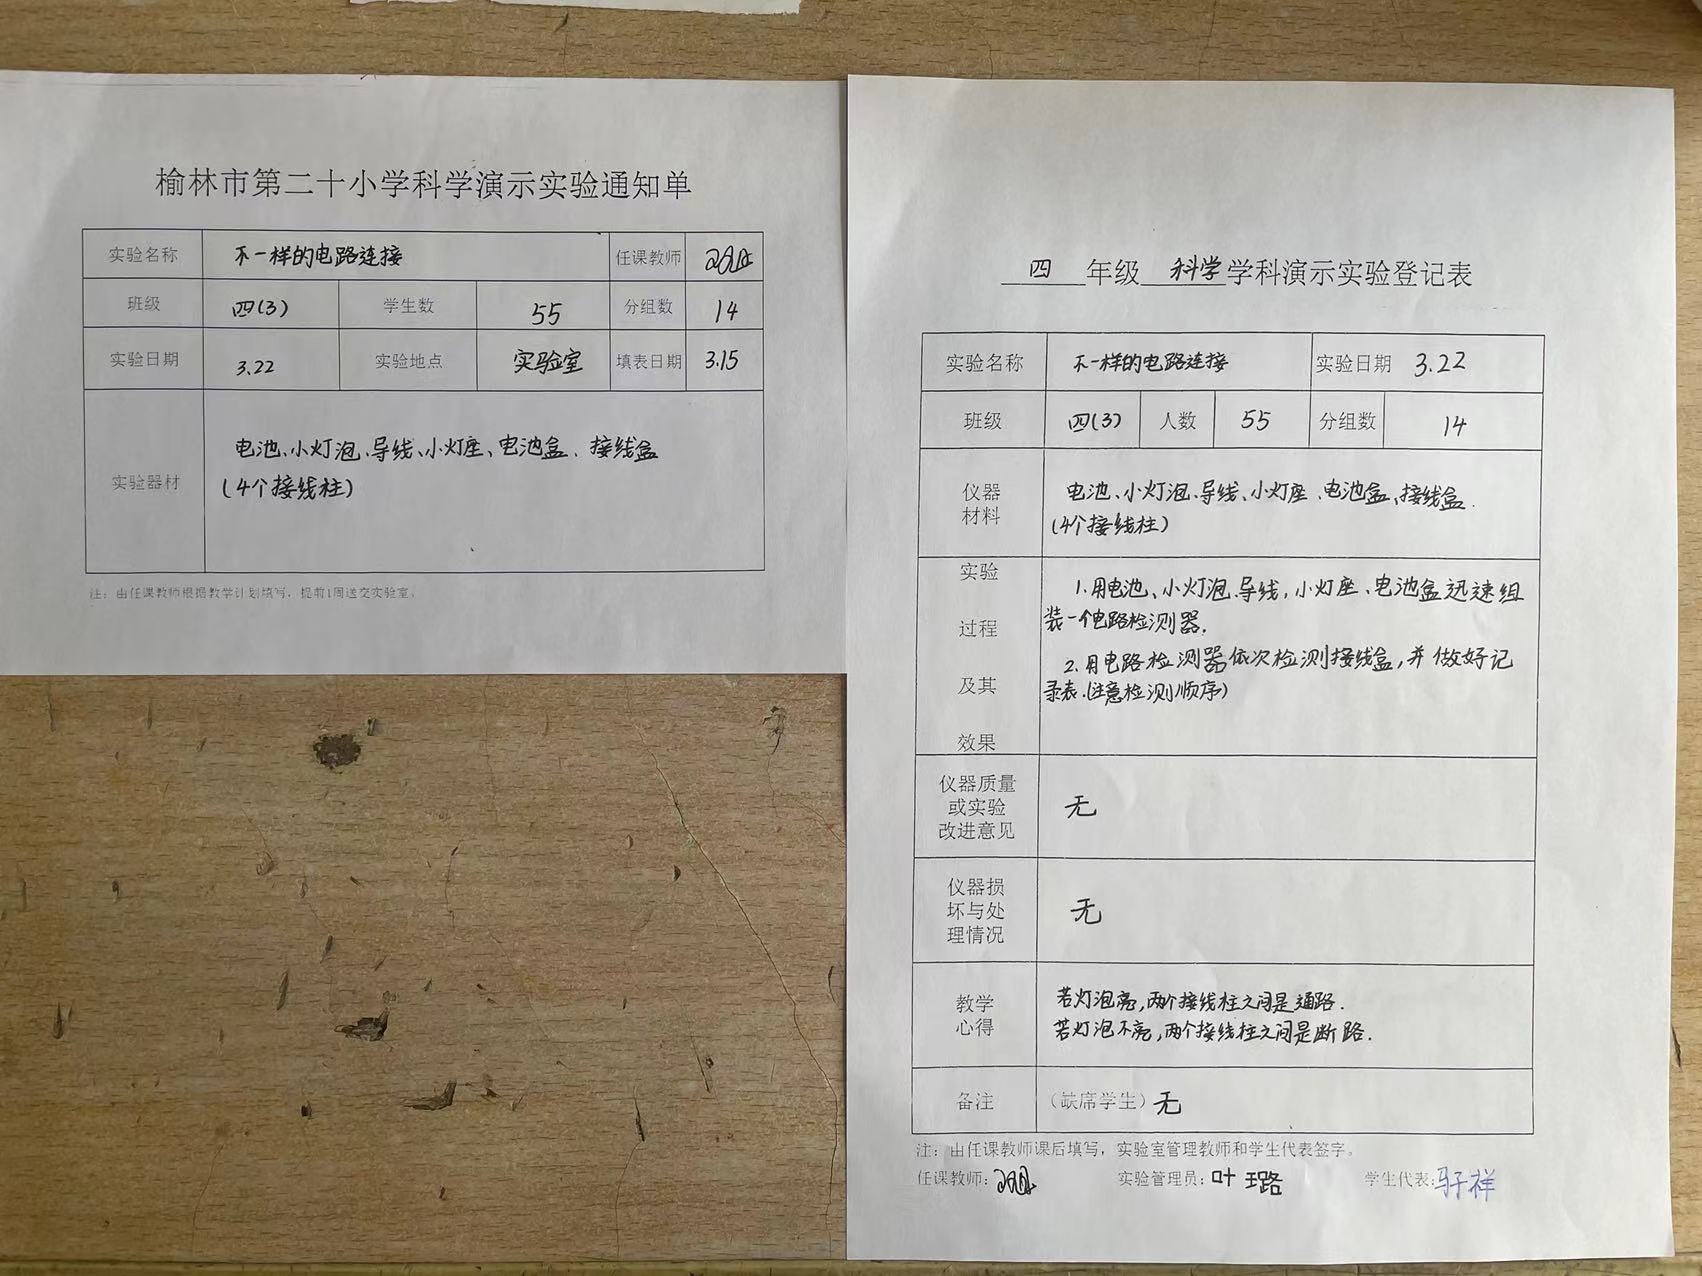 榆林市第二十小学科学演示实验通知单
实验名称 不一样的电路连接 任课教师
班级 四(3) 学生数 55 分组数 14
实验日期 3.22 实验地点 实验室 填表日期 3.15
实验器材
电池、小灯泡、导线、小灯座、电池盒、接线盒
(4个接线柱)
注：由任课教师根据教学计划填写，提前1周送交实验室。
四 年级 科学 学科演示实验登记表
实验名称 不一样的电路连接 实验日期 3.22
班级 四(3) 人数 55 分组数 14
仪器
材料
电池、小灯泡、导线、小灯座、电池盒、接线盒.
(4个接线柱)
实验
过程
及其
效果
1.用电池、小灯泡、导线,小灯座、电池盒迅速组
装一个电路检测器.
2.用电路检测器依次检测接线盒,并做好记
录表.(注意检测顺序)
仪器质量
或实验
改进意见
无
仪器损
坏与处
理情况
无
教学
心得
若灯泡亮,两个接线柱之间是通路.
若灯泡不亮,两个接线柱之间是断路.
备注 (缺席学生) 无
注：由任课教师课后填写，实验室管理教师和学生代表签字。
任课教师： 实验管理员：叶 学生代表：